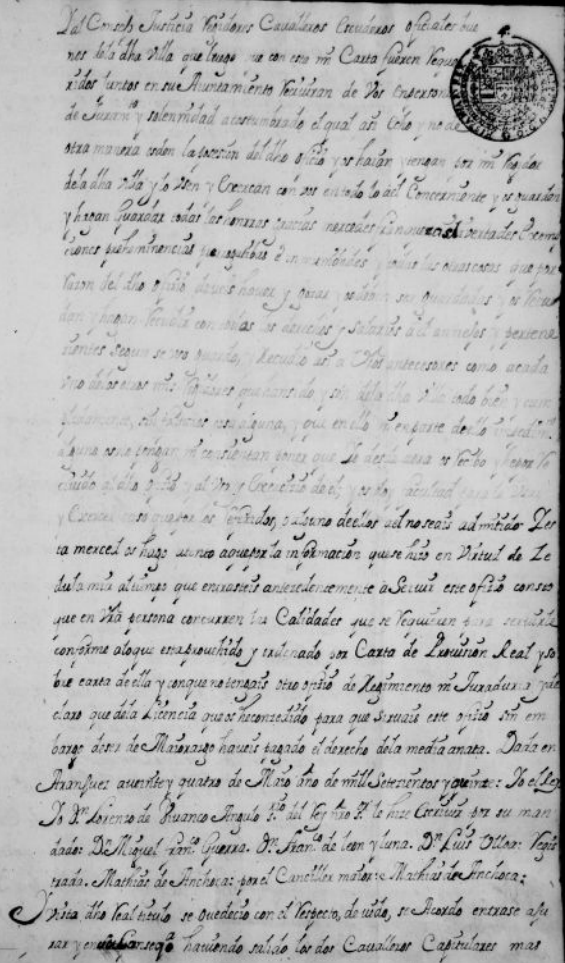 Dal Consejo Justicia Regidores Cavalleros Escuderos oficiales bue
nes dela dha Villa que luego que con esta mi Carta fueren Reque
ridos Juntos en su Aiuntamiento Recivan de Vos en persona
de Juramto y solemnidad acostumbrado el qual asi echo y no de
otra manera osden la posesion del dho oficio y os haian y tengan por mi Regidor
dela dha Villa y lo Usen y Exerzan con vos entodo lo ael Concerniente y os guarden
y hagan Guardar todas las honrras gracias mercedes franquezas livertades Exemp
ciones preheminencias prerrogativas e inmunidades y todas las otras cosas que por
razon del dho ofizio deveis haver y gozar y os deven ser guardadas y os Recu
dan y hagan Recudir con todos los derechos y salarios a el annejos y pertene
cientes segun se uso guardo, y Recudio asi a Vros antecesores como acada
uno delos otros mis Rexidores que han sido y son dela dha Villa todo bien y cum
plidamente, sin faltaros cosa alguna, y que en ello ni en parte dello impedimto
alguno os no pongan ni consientan poner que Yo desde aora os Recibo y he por Re
civido al dho ofizio y al Uso y Exercicio de el, y os doy facultad para le Usar
y Exercer caso que por los referidos, o alguno de ellos ael no seais admitido Zes
ta merced os hago atento aque por la informacion que se hizo en Virtud de Ze
dula mia al tiempo que entrasteis antezedentemente a Servir este ofizio consto
que en Vra persona concurren las Calidades que se Requieren para servirle
conforme alo que esta provehido y ordenado por Carta de Provision Real y so
bre carta de ella y conque no tengais otro ofizio de Regimiento ni Juraduria y de
claro que dela Licencia que os he conzedido para que sirvais este ofizio sin em
bargo deser de Maiorazgo haveis pagado el derecho dela media anata. Dada en
Aranjuez a veinte y quatro de Maio año de mill Setezientos y quinze: Yo el Rey
Yo Dn Lorenzo de Vivanco Angulo srio del Rey nro Sr le hize Escrivir por su man
dado: Dn Miguel franco Guerra. Dn Franco de leon y luna. Dn Luis Ulloa: Regis
trada. Mathias de Anchoca: por el Canciller maior: Mathias de Anchoca:
Y vista dho Real titulo se ovedecio con el Respecto, devido, se Acordo entrase a Ju
rar y en su Consequa haviendo salido los dos Cavalleros Capitulares mas